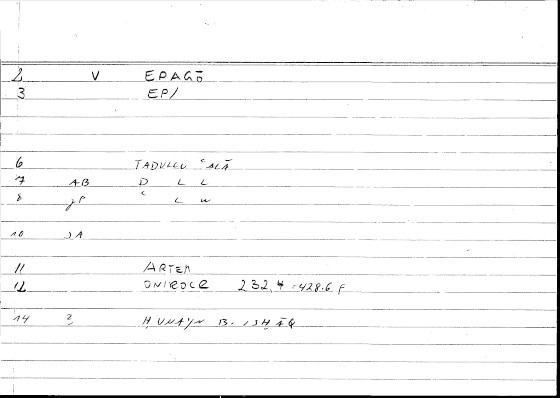 2 V EPAGŌ
3 EPI
6 TADULLU ʿALĀ
7 AB D L L
8 gP ʿ L w
10 JA
11 ARTEM
12 ONIROCR 232,4 = 428.6 F
14 2 ḤUNAYN B. ISḤĀQ